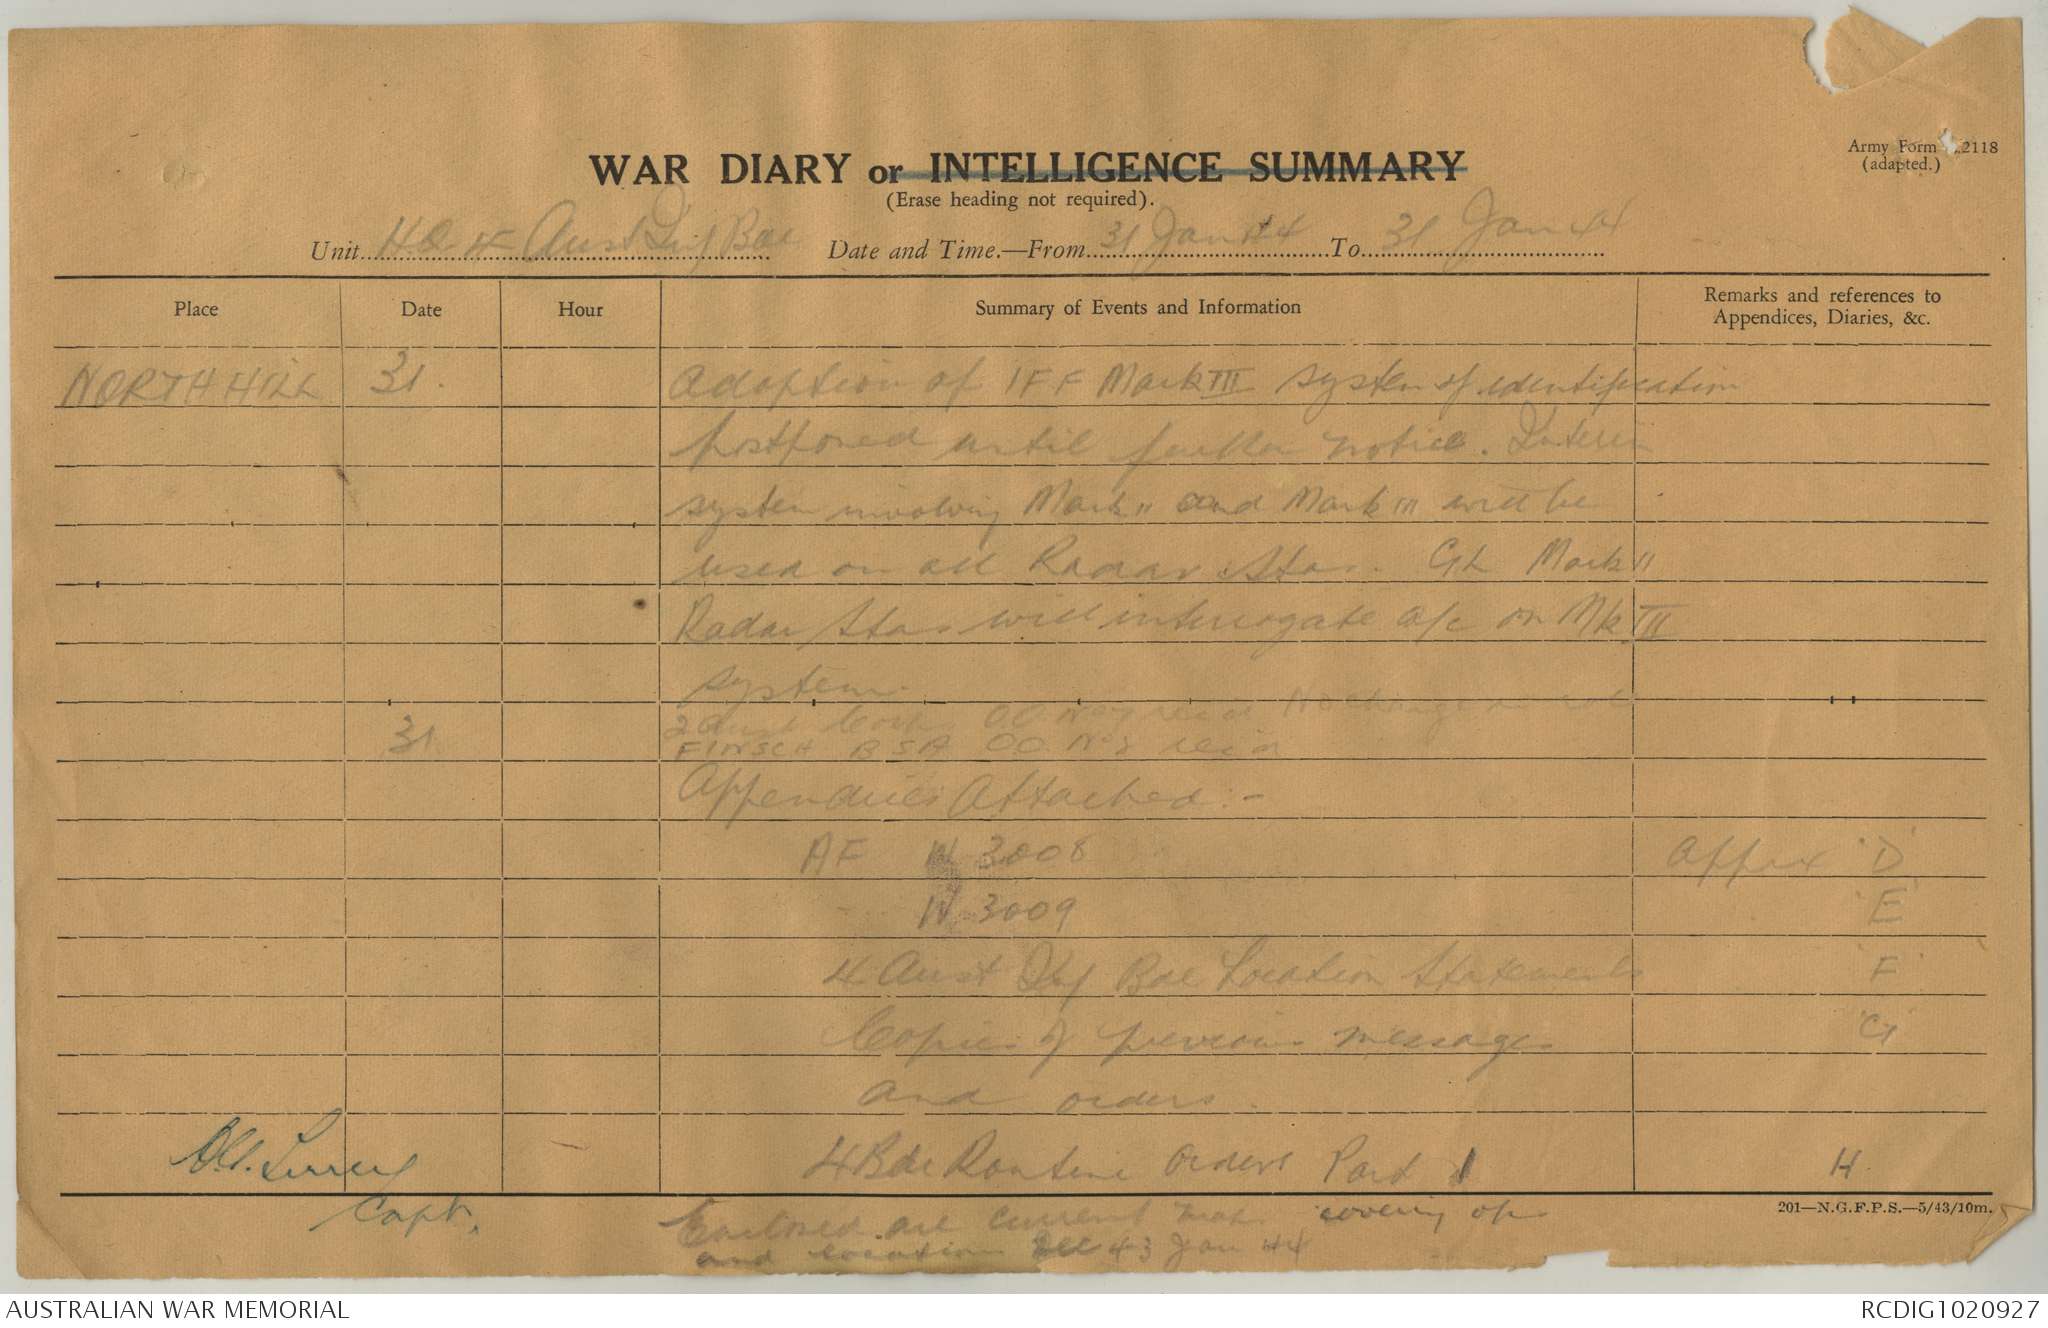 Army Form 2118
(adapted.)
WAR DIARY or INTELLIGENCE SUMMARY
(Erase heading not required).
Unit HQ 4 Aust Inf Bde Date and Time.—From 31 Jan 44 To 31 Jan 44
Place Date Hour Summary of Events and Information Remarks and references to Appendices, Diaries, &c.
NORTH HILL 31. Adoption of IFF Mark III system of identification
postponed until further notice. Interim
system involving Mark II and Mark III will be
used on all Radar Stas. GL Mark II
Radar Stas will interrogate a/c on Mk III
system.
31. 2 Aust Corps OO No recd No change
FINSCH BSA OO No 2 recd
Appendices Attached :-
AF W 3008 Appx 'D'
W 3009 'E'
4 Aust Inf Bde Location Statements 'F'
Copies of previous messages 'G'
and orders.
4 Bde Routine Orders Part 1 H
Capt.
Enclosed are current maps covering ops
and location Dec 43 Jan 44
201—N.G.F.P.S.—5/43/10m.
AUSTRALIAN WAR MEMORIAL RCDIG1020927